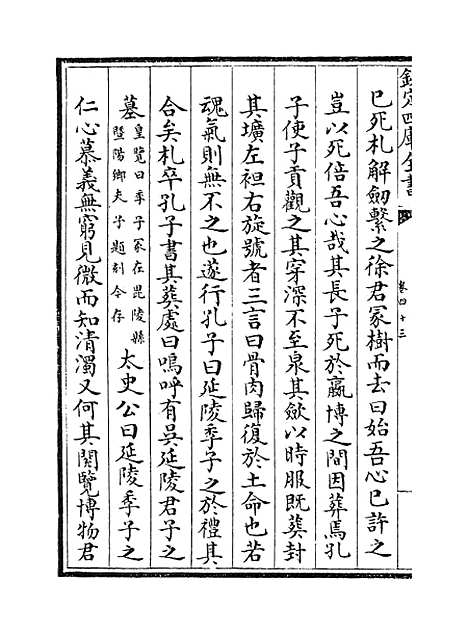 欽定四庫全書
卷四十三
已死札解劒繫之徐君冢樹而去曰始吾心已許之
豈以死倍吾心哉其長子死於嬴博之間因葬焉孔
子使子貢觀之其穿深不至泉其斂以時服既葬封
其壙左袒右旋號者三言曰骨肉歸復於土命也若
魂氣則無不之也遂行孔子曰延陵季子之於禮其
合矣札卒孔子書其葬處曰嗚呼有吳延陵君子之
墓皇覽曰季子冢在毘陵縣
暨陽鄉夫子題刻今存
太史公曰延陵季子之
仁心慕義無窮見微而知清濁又何其閎覽博物君